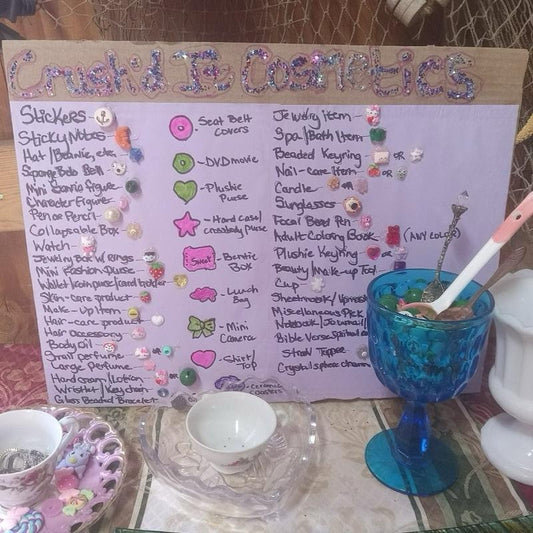 Crush'd It Cosmetics
Stickers
Sticky Notes
Hat/Beanie, etc.
Sponge Bob Bell
Mini Sanrio figure
Character Figure
Pen or Pencil
Collapsable Box
Watch
Jewelry Box w/ rings
Mini Fashion Purse
Wallet/coin purse/card holder
Skin-care product
Make-up Item
Hair-care product
Hair accessory
Body oil
Small perfume
Large Perfume
Hand cream/Lotion
OR
Wristlet/Key chain
Glass Beaded Bracelet
Seat Belt Covers
DVD movie
Plushie Purse
Hard case/crossbody Purse
Sweet
Bento Box
Lunch Bag
Mini Camera
Shirt/Top
Ceramic Coasters
Jewelry item
Spa/Bath Item
Beaded Keyring
OR
Nail-care item
OR
Candle
OR
Sunglasses
Focal Bead Pen
Adult Coloring Book
(ANY COLOR)
Plushie Keyring
OR
Beauty/Make-up Tool
Cup
Sheetmask/
Miscellaneous Pick
Notebook/Journal/
Bible Verse
Straw Topper
Crystal sphere